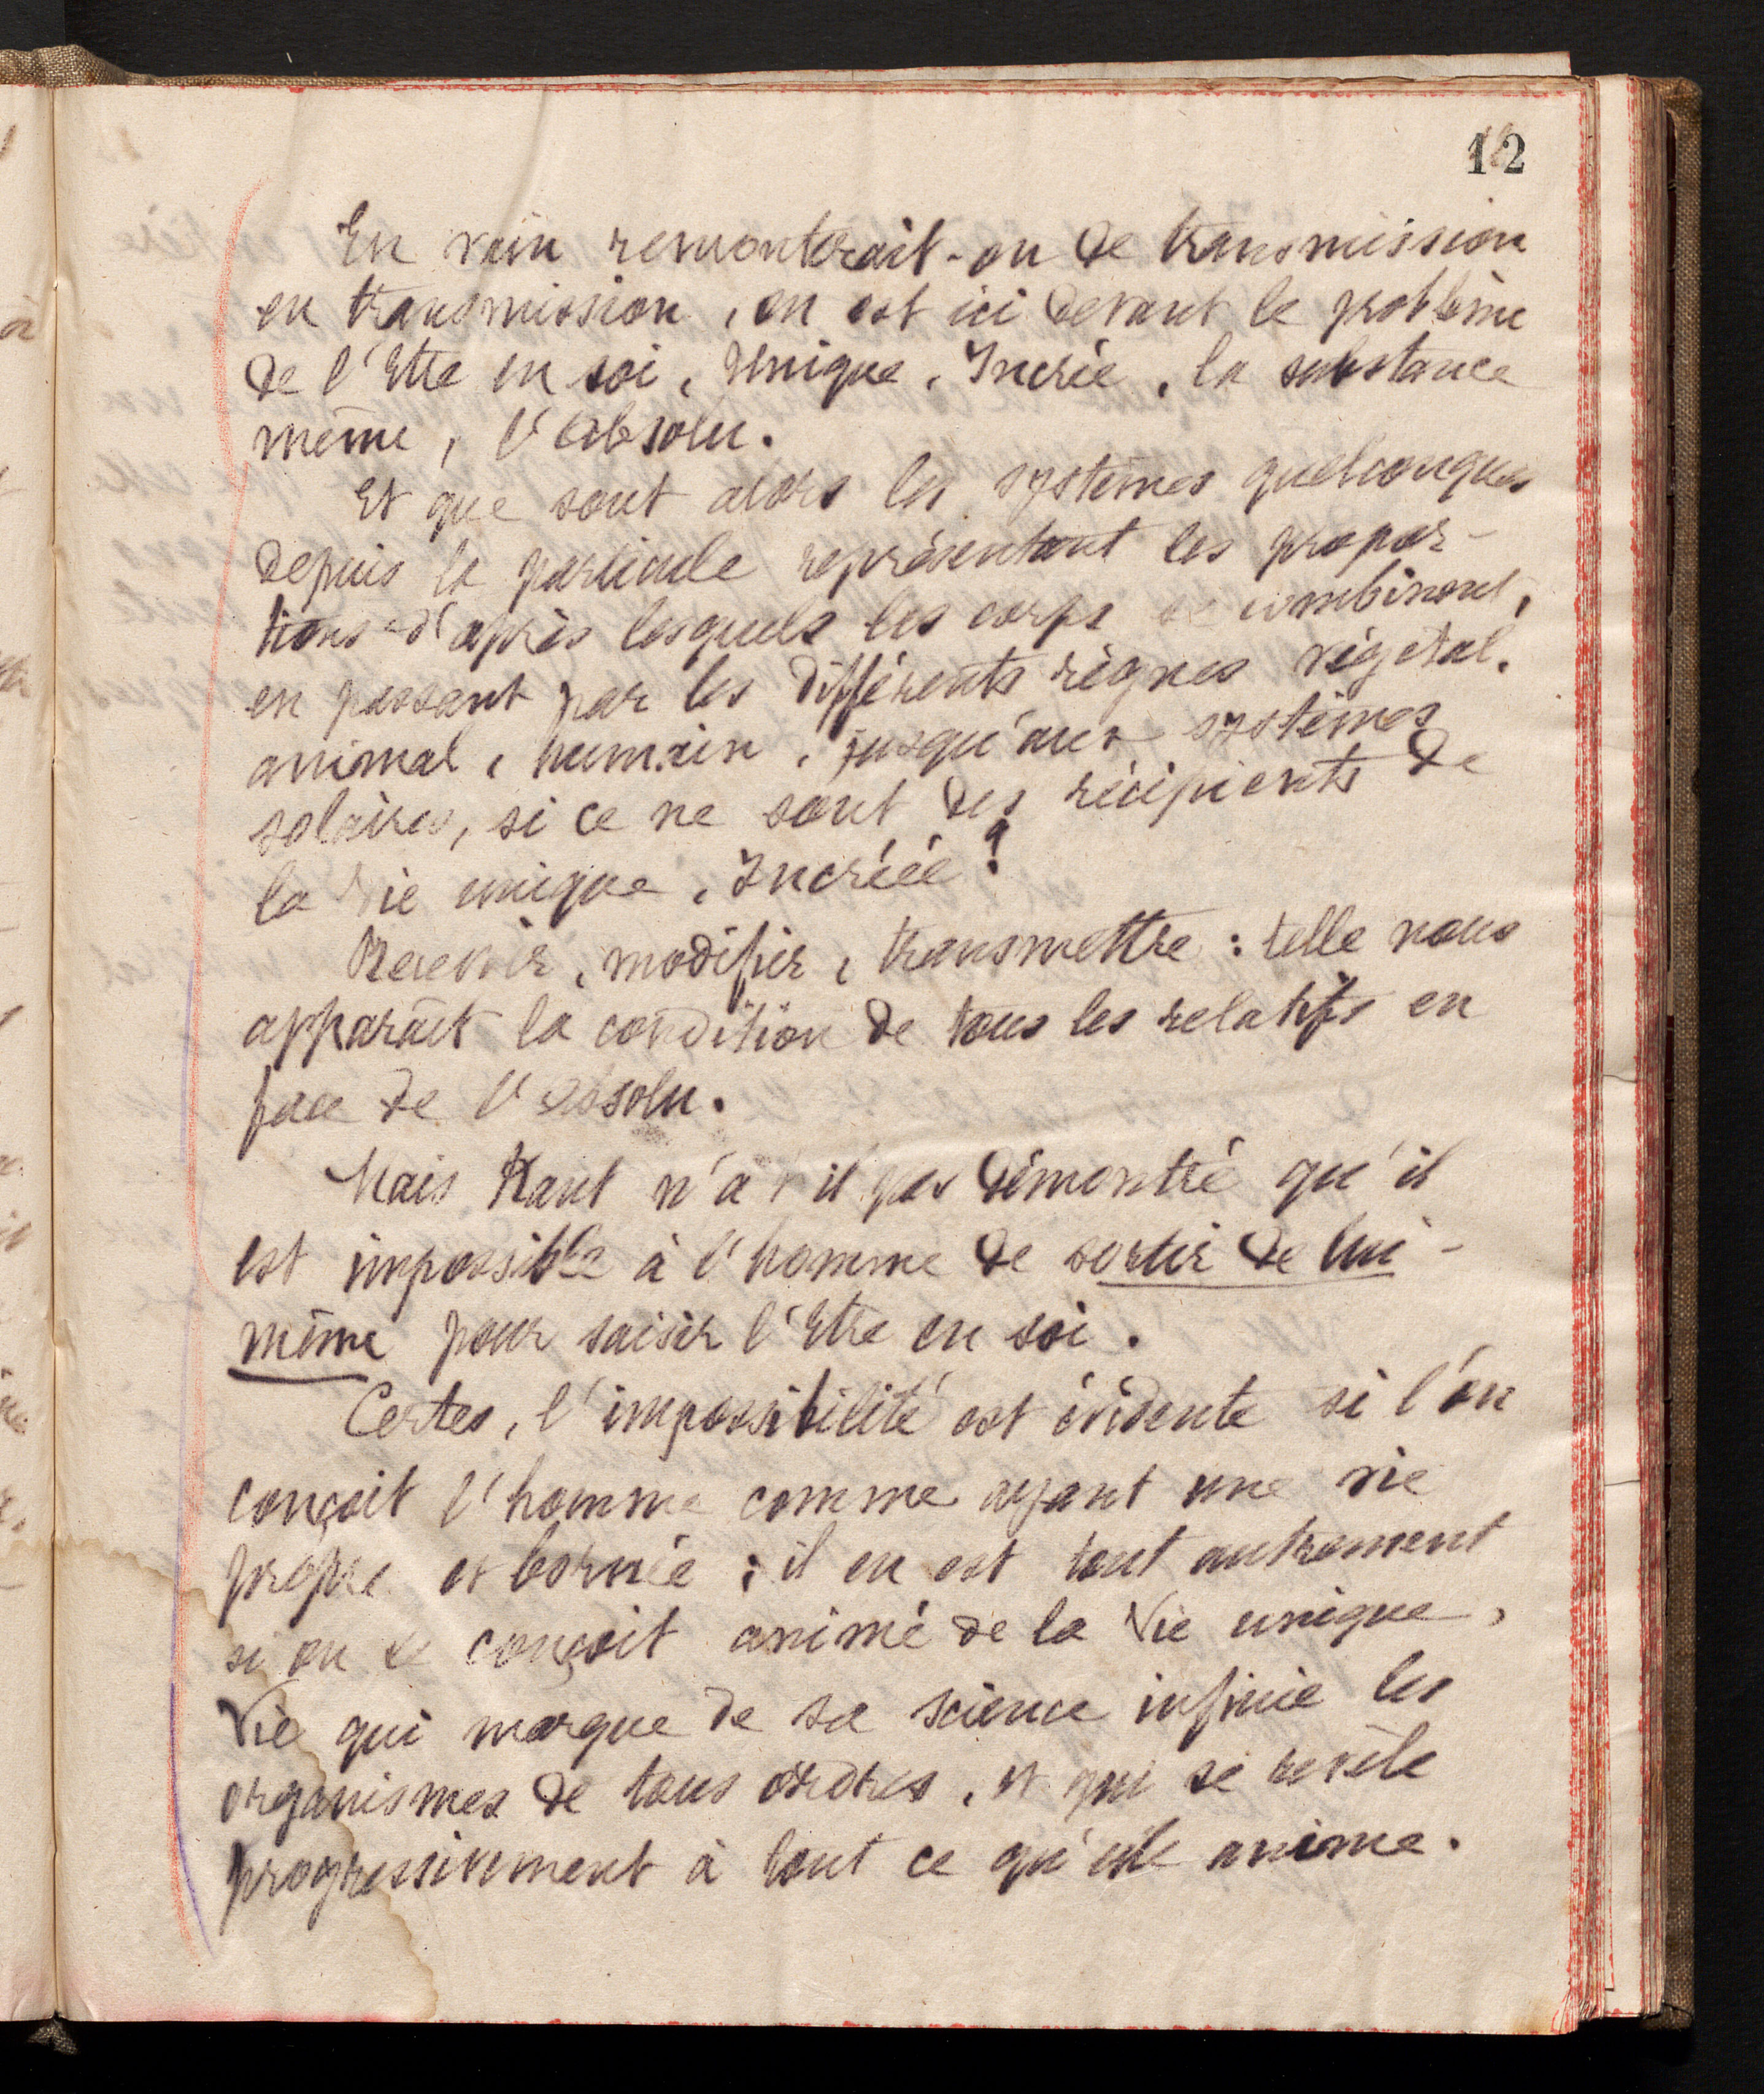 12
En vain remonterait-on de transmission
en transmission, on est ici devant le problème
de l'Etre en soi, Unique, Incréé, la substance
même, l'Absolu.
Et que sont alors les systèmes quelconques
depuis la particule représentant les propor-
tions d'après lesquels les corps se combinent,
en passant par les différents règnes végétal,
animal, humain, jusqu'aux systèmes
solaires, si ce ne sont des récipients de
la Vie unique, Incréée?
Recevoir, modifier, transmettre : telle nous
apparait la condition de tous les relatifs en
face de l'absolu.
Mais Kant n'a t il pas démontré qu'il
est impossible à l'homme de sortir de lui-
même pour saisir l'Etre en soi.
Certes, l'impossibilité est évidente si l'on
conçoit l'homme comme ayant une vie
propre et bornée ; il en est tout autrement
si on le conçoit animé de la Vie unique,
Vie qui marque de sa science infinie les
organismes de tous ordres, et qui se révèle
progressivement à tout ce qu'elle anime.